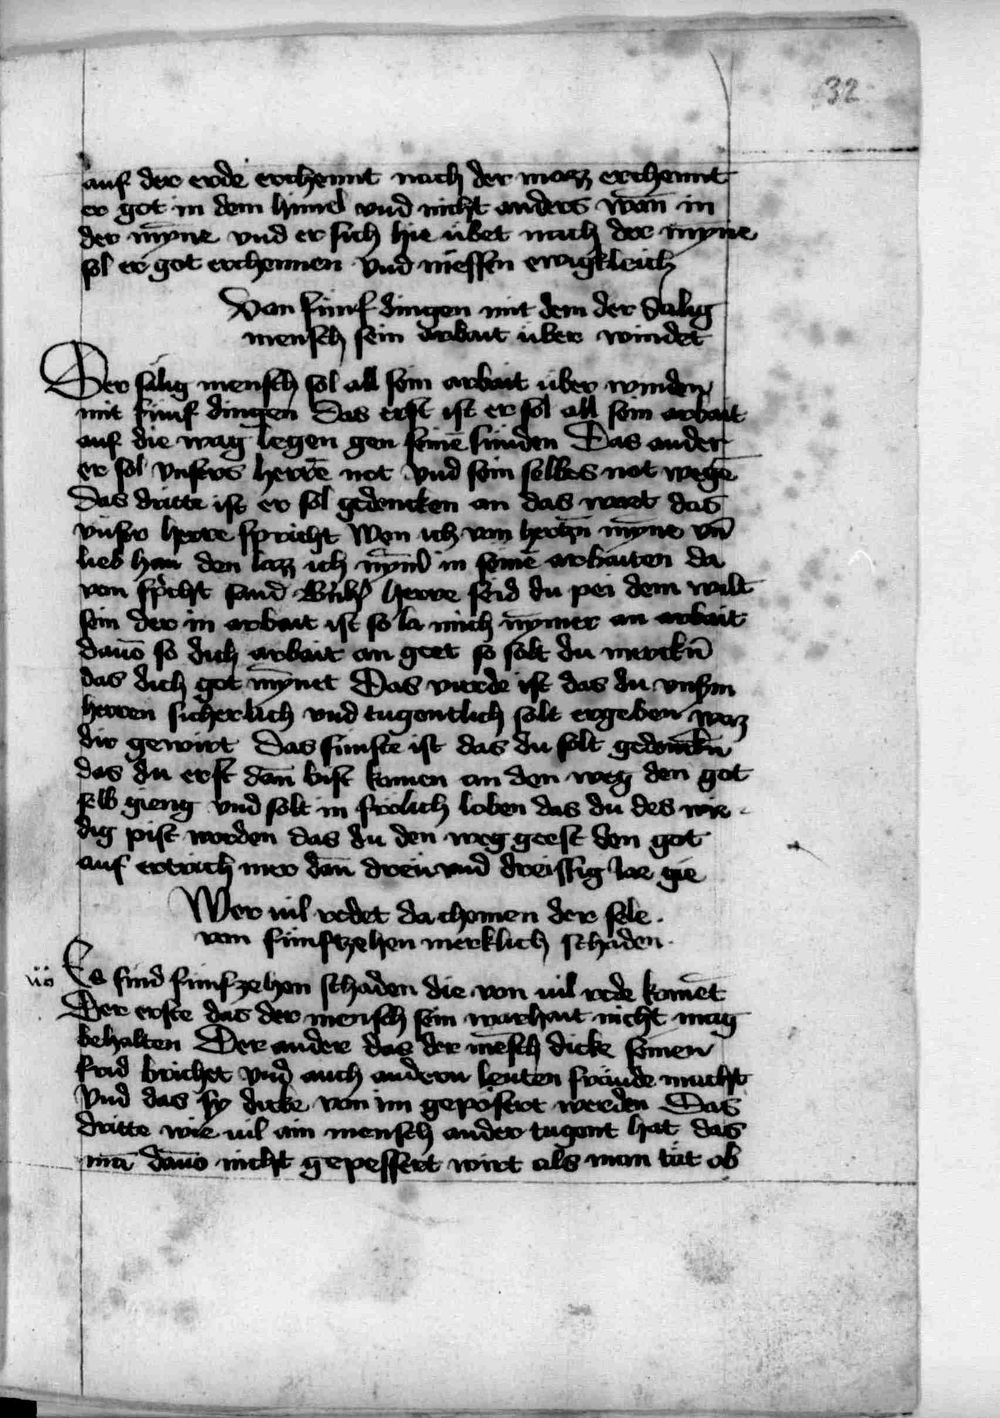 32
auf der erde erchennt nach der mazz erchennt
er got in dem himel vnd nicht anders wān in
der mȳne vnd er sich hie übet nach der mȳne
sol er got erchennen vnd niessen ewigkleich
Von fünf dingen mit dem der Sälig
mensch sein arbait über windet
Der sälig mensch sol all sein arbait über winden
mit fünf dingen Das erst ist er sol all sein arbait
auf die wag legen gen seinē sünden Das ander
er sol vnsers herrē not vnd sein selbes not wegē
Das dritte ist er sol gedencken an das wort das
vnser herre spricht Wen ich von hertzn mȳne vn̄
lieb han den lazz ich nȳm̄ in seinē arbaiten da
von spricht sand herre seid du pei dem wilt
sein der in arbait ist so la mich nȳmer an arbait
dauō so dich arbait an geet so solt du merckn̄
das dich got mȳnet Das vierde ist das du vnserm
herren sicherlich vnd tugentlich solt ergeben waz
dir gewirt Das fünfte ist das du solt gedenckn̄
das du erst dān bist komen an den weg den got
selb gieng vnd solt in frölich loben das du des wir-
dig pist worden das du den weg geest den got
auf ertrich mer dān dreü vnd dreissig Jar gie
Wer uil redet da chomen der sele.
von fünftzehen mercklich schaden.
Es sind fünfzehen schaden die von uil rede komēt
Der erste das der mensch sein warhait nicht mag
behalten Der ander das der mēsch dicke seinen
frid brichet vnd auch andern leuten fräude macht
vnd das sy dicke von im gepösert werden Das
dritte wie uil ain mensch ander tugent hat das
mā dauō nicht gepessert wirt als man tüt ob